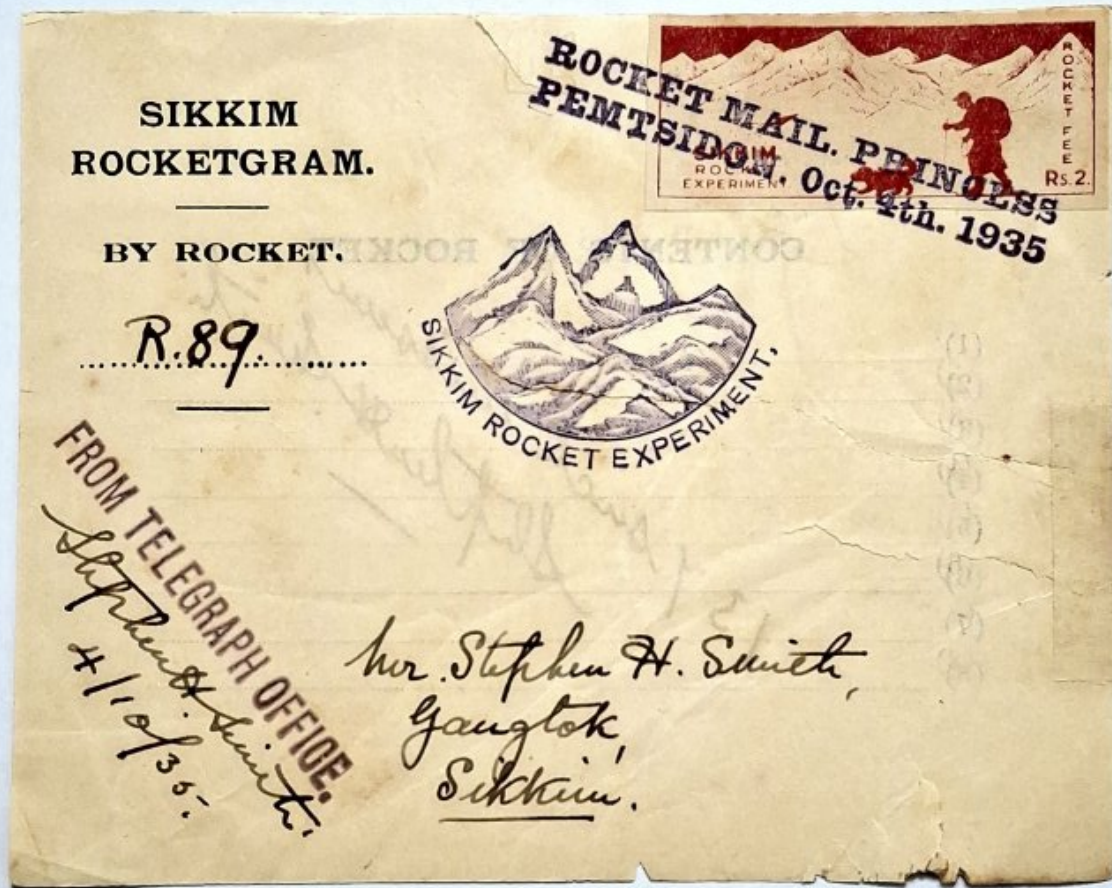 SIKKIM
ROCKETGRAM.
BY ROCKET.
R.89.
ROCKET MAIL. PRINCESS
PEMTSIDON. Oct. 4th. 1935
SIKKIM
ROCKET
EXPERIMENT.
ROCKET FEE
Rs. 2.
SIKKIM ROCKET EXPERIMENT.
FROM TELEGRAPH OFFICE.
Stephen H. Smith.
4/10/35.
Mr. Stephen H. Smith,
Gangtok,
Sikkim.
CONTENTS OF ROCKET